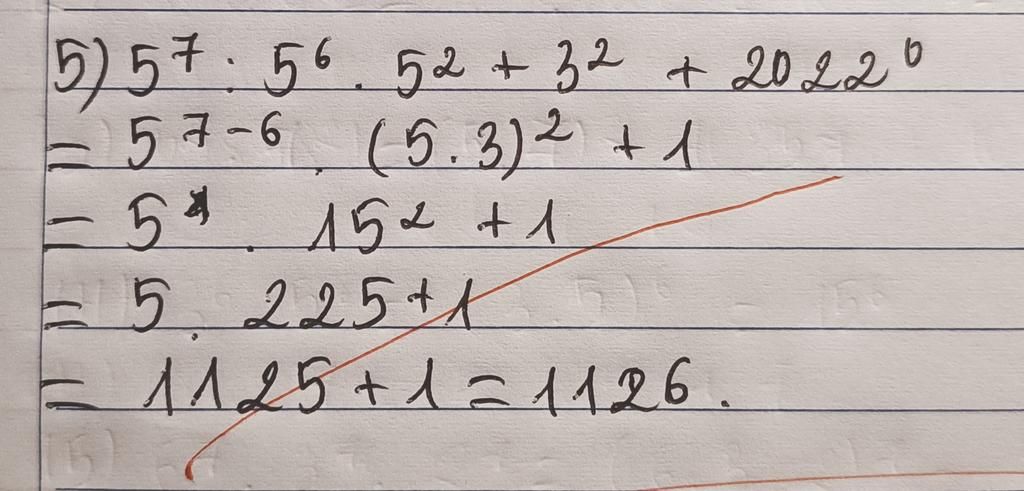 5) 5⁷ : 5⁶ . 5² + 3² + 2022⁰
= 5⁷⁻⁶ . (5.3)² + 1
= 5¹ . 15² + 1
= 5 . 225 + 1
= 1125 + 1 = 1126.